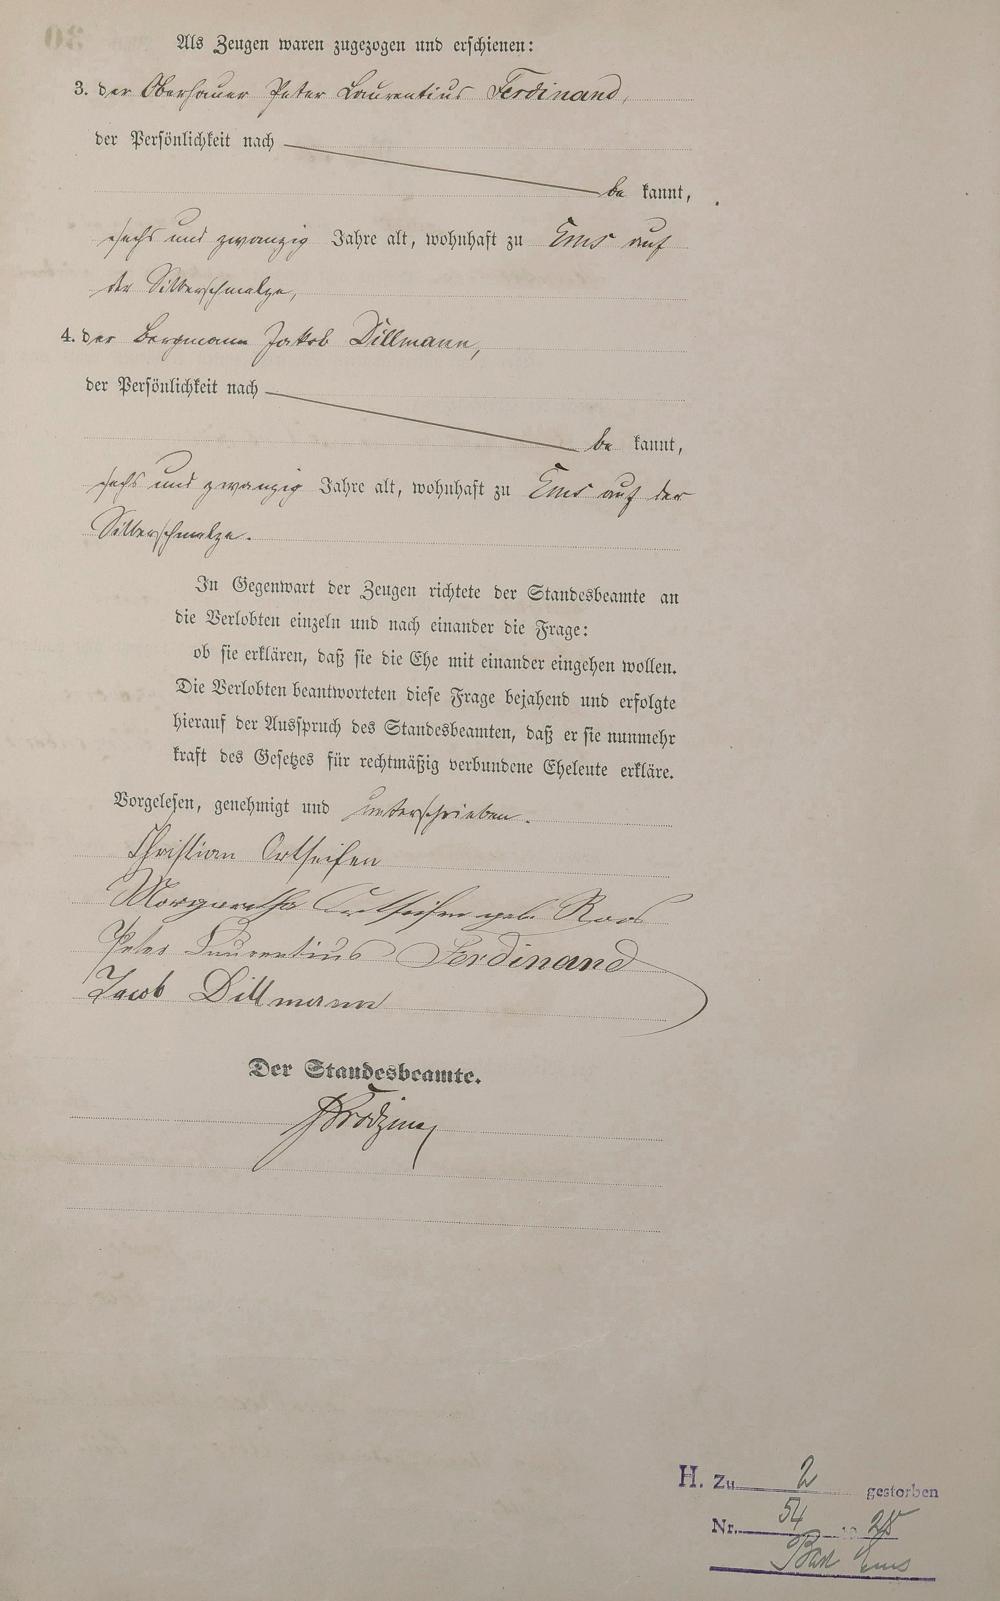 Als Zeugen waren zugezogen und erschienen:
3. der Oberhauer Peter Laurentius Ferdinand,
der Persönlichkeit nach
be kannt,
sechs und zwanzig Jahre alt, wohnhaft zu Ems auf
der Silberschmelze,
4. der Bergmann Jakob Dillmann,
der Persönlichkeit nach
be kannt,
sechs und zwanzig Jahre alt, wohnhaft zu Ems auf der
Silberschmelze.
In Gegenwart der Zeugen richtete der Standesbeamte an
die Verlobten einzeln und nach einander die Frage:
ob sie erklären, daß sie die Ehe mit einander eingehen wollen.
Die Verlobten beantworteten diese Frage bejahend und erfolgte
hierauf der Ausspruch des Standesbeamten, daß er sie nunmehr
kraft des Gesetzes für rechtmäßig verbundene Eheleute erkläre.
Vorgelesen, genehmigt und unterschrieben.
Christian Ortseifen
Margaretha Ortseifen geb. Roos
Peter Laurentius Ferdinand
Jacob Dillmann
Der Standesbeamte.
H. Zu 2 gestorben
Nr. 54 19 28
Bad Ems